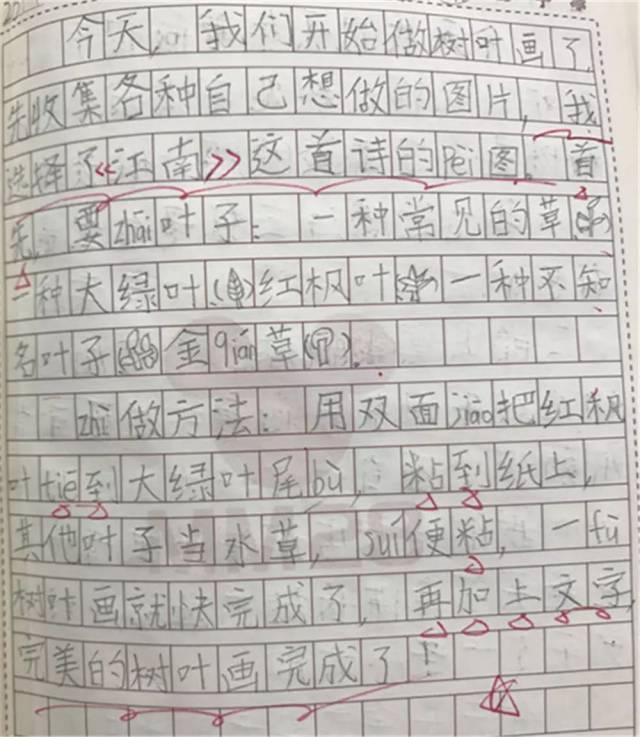 今天,我们开始做树叶画了,
先收集各种自己想做的图片,我
选择了《江南》这首诗的pèi图。首
先,要zhāi叶子:一种常见的草()
一种大绿叶()红枫叶()一种不知
名叶子()金qián草()。
zhì做方法:用双面jiāo把红枫
叶tiē到大绿叶尾bù,粘到纸上,
其他叶子当水草,suí便粘,一fù
树叶画就快完成了,再加上文字,
完美的树叶画完成了!